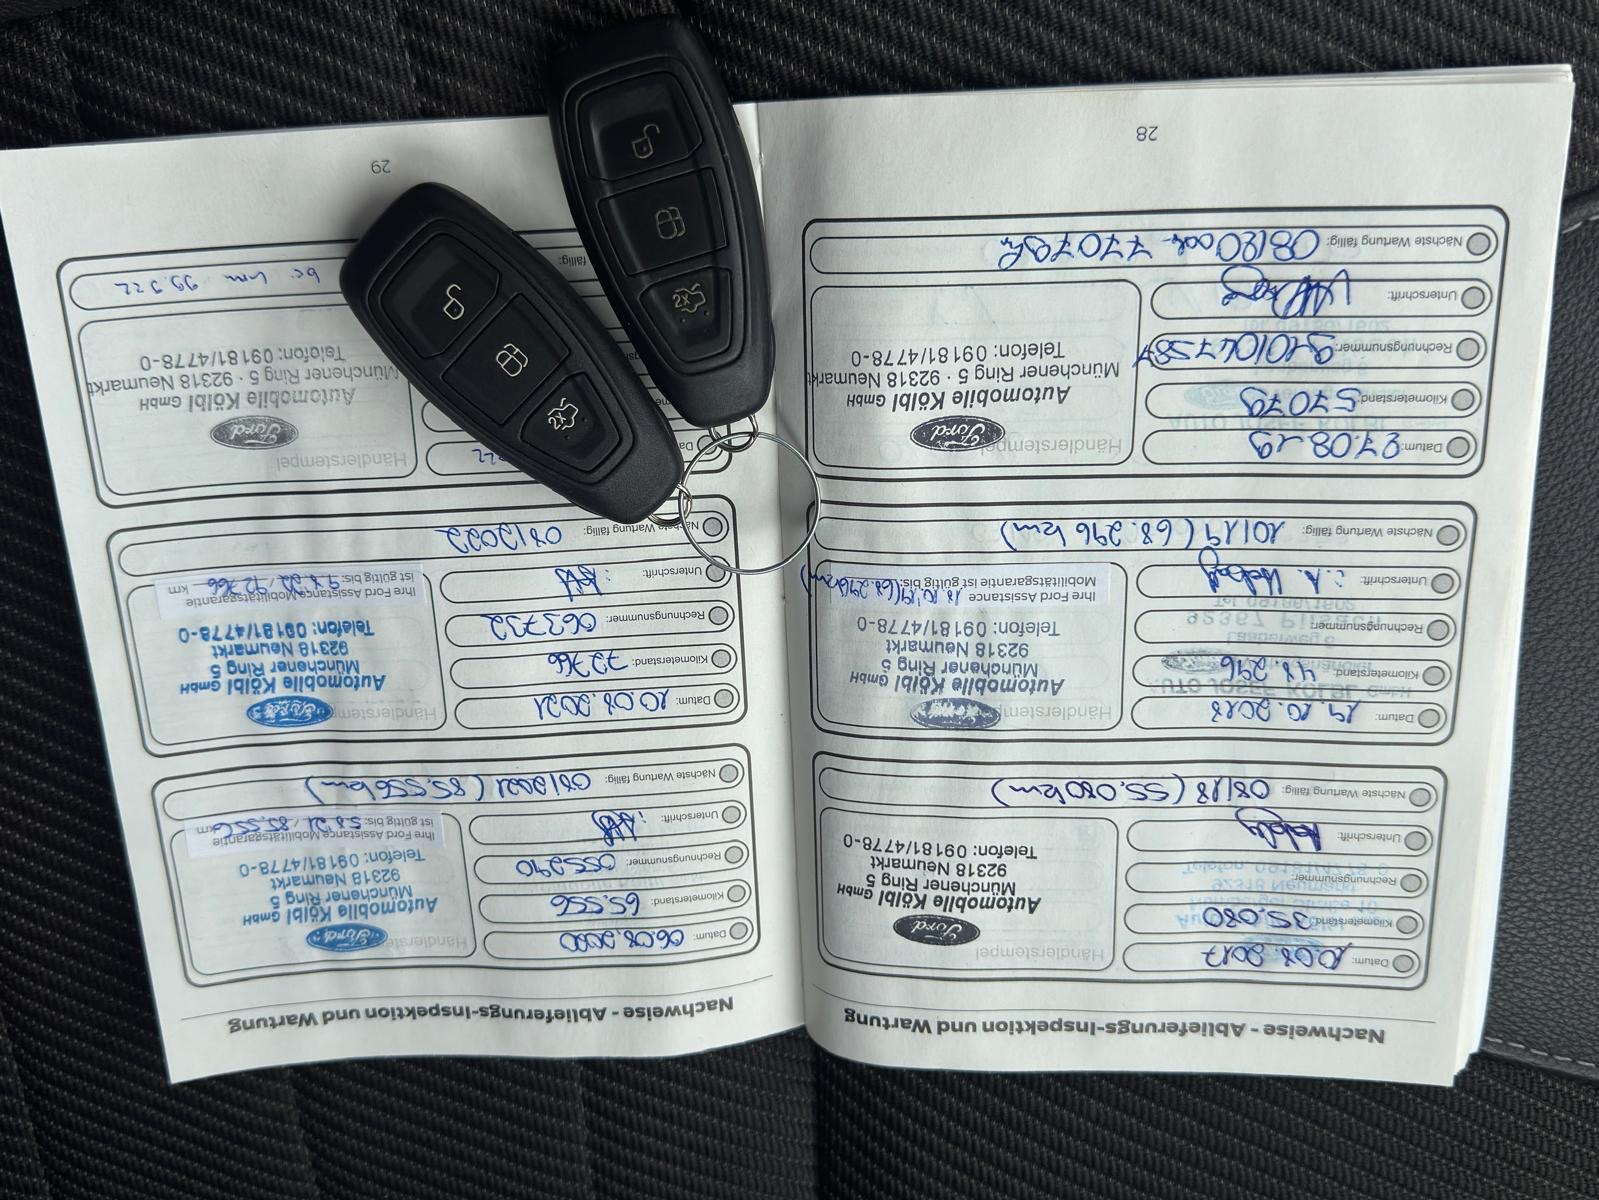 Nachweise - Ablieferungs-Inspektion und Wartung
Datum: 10.08.2017
Kilometerstand: 35.080
Rechnungsnummer:
Unterschrift:
Händlerstempel
Ford
Automobile Kölbl GmbH
Münchener Ring 5
92318 Neumarkt
Telefon: 09181/4778-0
Nächste Wartung fällig: 08/18 (55.080km)
Datum: 19.10.2018
Kilometerstand: 48.296
Rechnungsnummer:
Unterschrift:
Händlerstempel
Automobile Kölbl GmbH
Münchener Ring 5
92318 Neumarkt
Telefon: 09181/4778-0
Ihre Ford Assistance
Mobilitätsgarantie ist gültig bis: 18.10.'19 (68.296km)
Nächste Wartung fällig: 10/19 (68.296 km)
Datum: 27.08.19
Kilometerstand: 57079
Rechnungsnummer: 9101047587
Unterschrift:
Händlerstempel
Ford
Automobile Kölbl GmbH
Münchener Ring 5 · 92318 Neumarkt
Telefon: 09181/4778-0
Nächste Wartung fällig: 08/20 oder 77079
28
Nachweise - Ablieferungs-Inspektion und Wartung
Datum: 06.08.2020
Kilometerstand: 65.556
Rechnungsnummer: 055290
Unterschrift:
Händlerstempel
Ford
Automobile Kölbl GmbH
Münchener Ring 5
92318 Neumarkt
Telefon: 09181/4778-0
Ihre Ford Assistance Mobilitätsgarantie
ist gültig bis: 5.8.21 / 85.556 km
Nächste Wartung fällig: 08/2021 (85.556km)
Datum: 10.08.2021
Kilometerstand: 72766
Rechnungsnummer: 063732
Unterschrift:
Händlerstempel
Ford
Automobile Kölbl GmbH
Münchener Ring 5
92318 Neumarkt
Telefon: 09181/4778-0
Ihre Ford Assistance Mobilitätsgarantie
ist gültig bis: 9.8.22 / 92.766 km
Nächste Wartung fällig: 08/2022
Händlerstempel
Ford
Automobile Kölbl GmbH
Münchener Ring 5 · 92318 Neumarkt
Telefon: 09181/4778-0
fällig: km 99.922
29
2x
2x